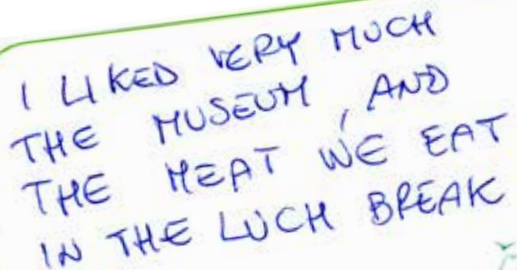 I LIKED VERY MUCH
THE MUSEUM, AND
THE MEAT WE EAT
IN THE LUCH BREAK